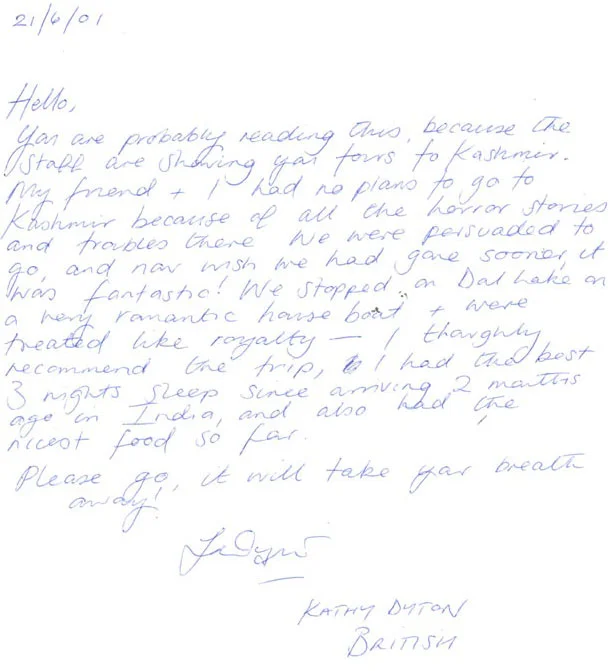 21/6/01
Hello,
You are probably reading this, because the
staff are showing you tours to Kashmir.
My friend + I had no plans to go to
Kashmir because of all the horror stories
and troubles there We were persuaded to
go, and now wish we had gone sooner, it
was fantastic! We stopped on Dal Lake on
a very romantic house boat + were
treated like royalty — I thoughly
recommend the trip, I had the best
3 nights sleep since arriving 2 months
ago in India, and also had the
nicest food so far.
Please go, it will take your breath
away!
KATHY DYTON
BRITISH